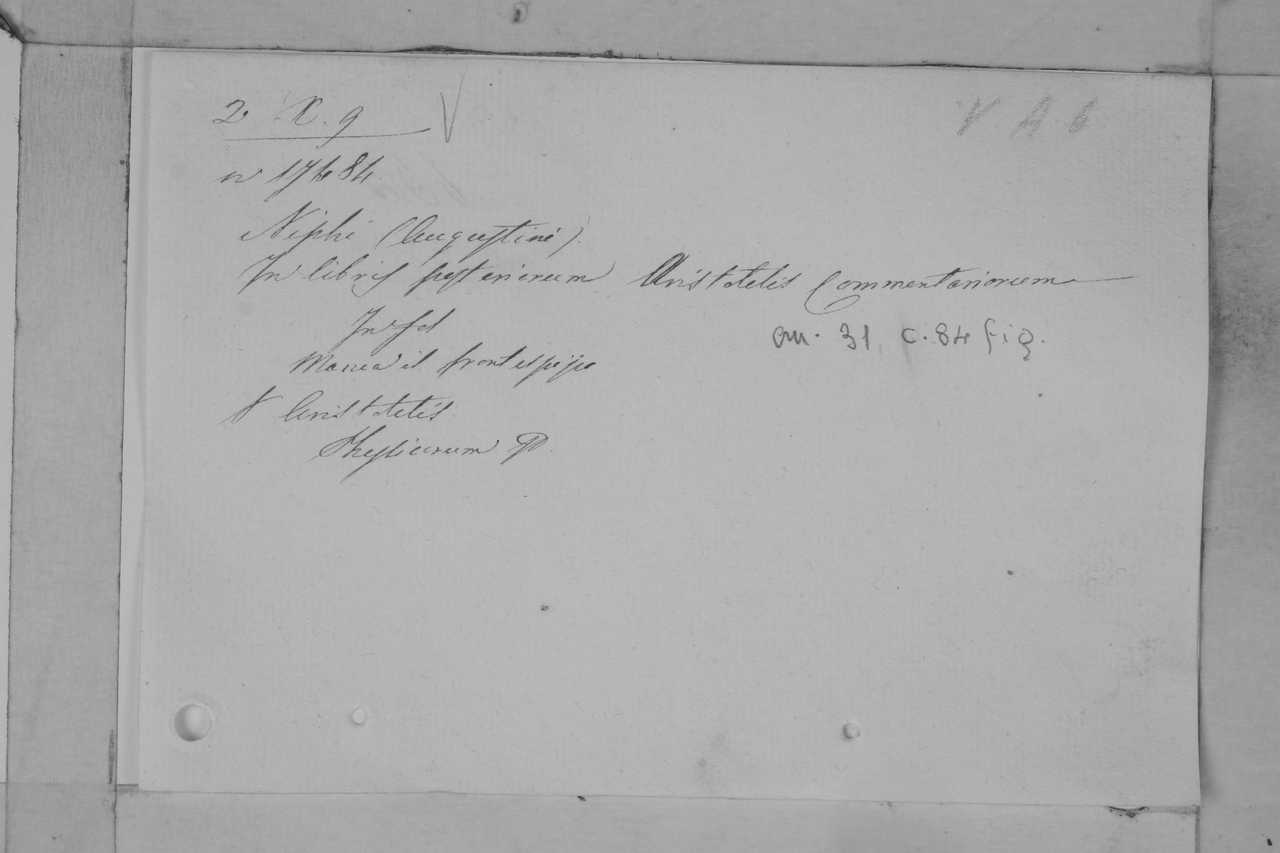 2 X. 9 V
V. A. 6
n 17484
Niphi (Augustini).
In libris posteriorum Aristotelis Commentariorum
In fol
an. 31 c. 84 fig.
Manca il frontespizio
V Aristotelis
Physicorum P.